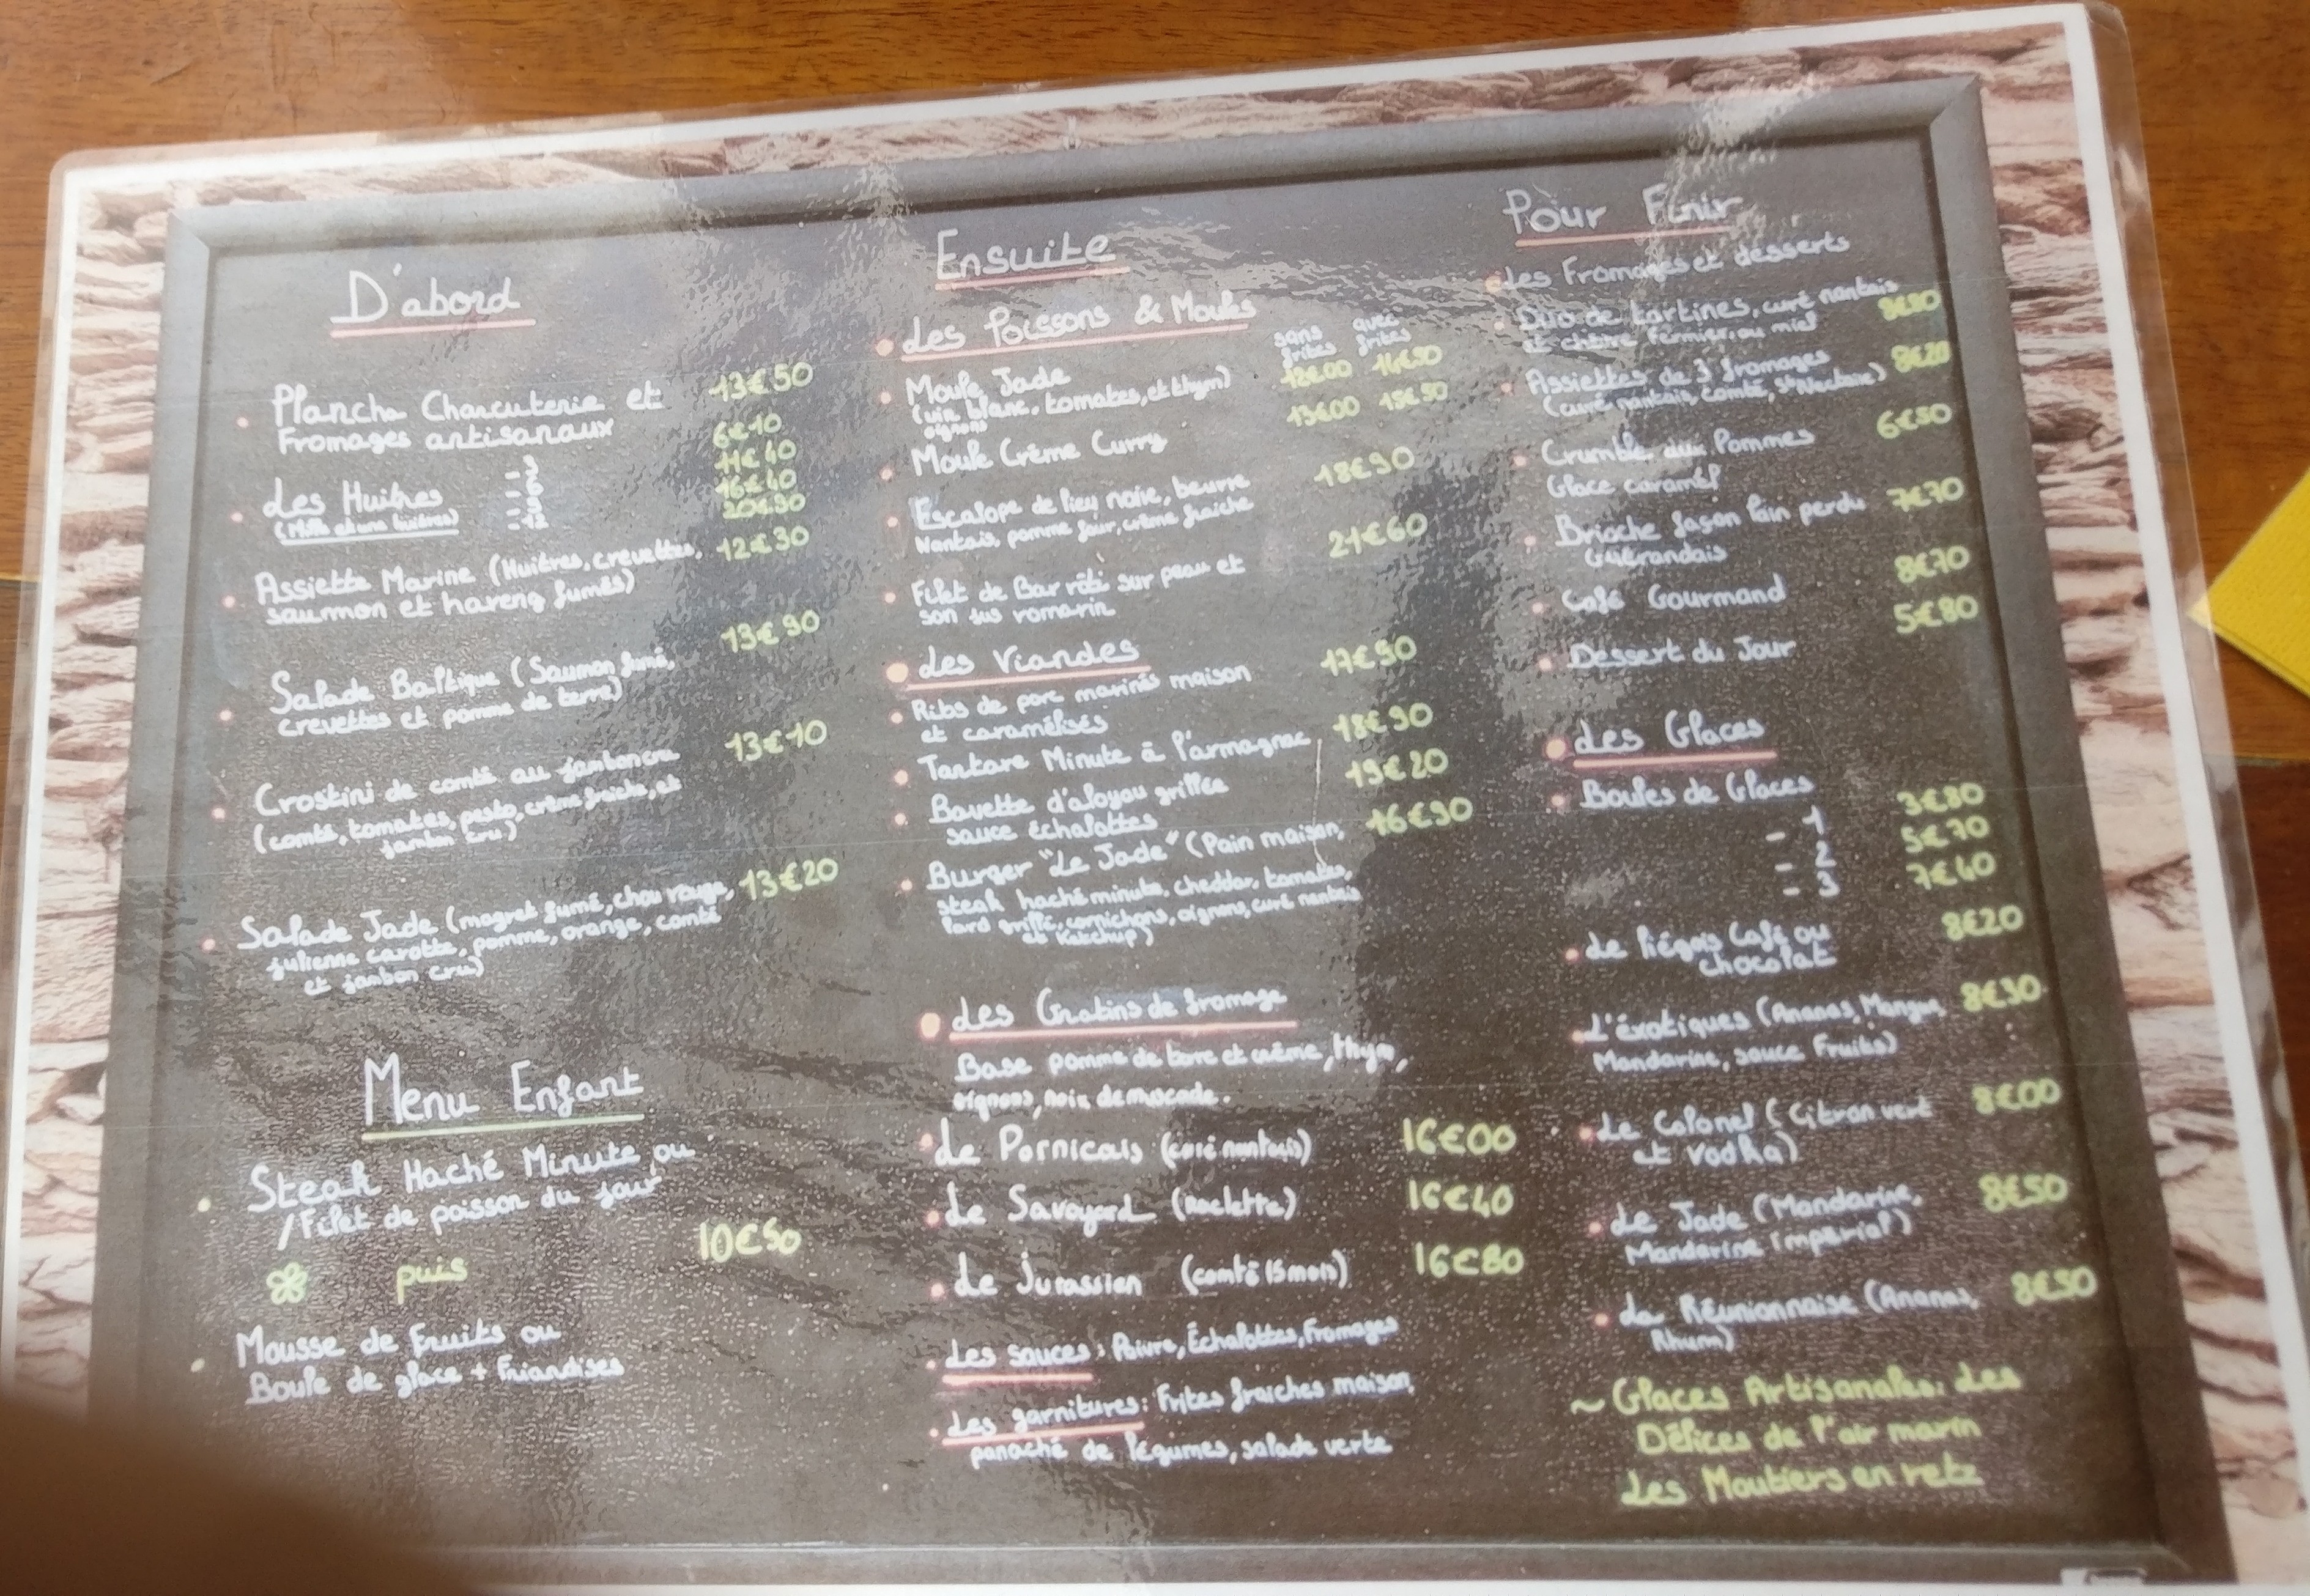 D'abord
Plancha Charcuterie et 13€50
Fromages artisanaux
Les Huîtres - 3 6€10
- 6 11€40
- 9 16€40
- 12 20€90
Assiette Marine (Huîtres, crevettes, 12€30
saumon et hareng fumés)
Salade Baltique (Saumon fumé, 13€90
crevettes et pomme de terre)
Crostini de comté au jambon cru 13€10
(comté, tomates, pesto, crème fraiche, et
jambon cru)
Salade Jade (magret fumé, chou rouge, 13€20
julienne carotte, pomme, orange, comté
et jambon cru)
Menu Enfant
Steak Haché Minute ou
/Filet de poisson du jour
puis 10€50
Mousse de Fruits ou
Boule de glace + Friandises
Ensuite
Les Poissons & Moules
sans frites avec frites
Moule Jade 12€00 14€90
(vin blanc, tomates, et thym)
oignons
Moule Crème Curry 13€00 15€90
Escalope de lieu noir, beurre 18€90
Nantais, pomme four, crème fraiche
Filet de Bar rôti sur peau et 21€60
son jus romarin
Les Viandes
Ribs de porc marinés maison 17€90
et caramélisés
Tartare Minute à l'armagnac 18€90
Bavette d'aloyau grillée 19€20
sauce échalottes
Burger "Le Jade" (Pain maison, 16€90
steak haché minute, cheddar, tomates,
lard grillé, cornichons, oignons, curé nantais
et Ketchup)
Les Gratins de fromage
Base pomme de terre et crème, thym,
oignons, noix de muscade.
Le Pornicais (curé nantais) 16€00
Le Savoyard (Raclette) 16€40
Le Jurassien (comté 15 mois) 16€80
Les sauces : Poivre, Échalottes, Fromages
Les garnitures : Frites fraiches maison,
panaché de légumes, salade verte
Pour Finir
Les Fromages et desserts
Duo de tartines, curé nantais
et chèvre fermier au miel
Assiettes de 3 fromages 8€20
(curé nantais, comté, St Nectaire)
Crumble aux Pommes 6€50
Glace caramel
Brioche façon Pain perdu 7€70
Guérandais
Café Gourmand 8€70
Dessert du Jour 5€80
Les Glaces
Boules de Glaces
- 1 3€80
- 2 5€70
- 3 7€40
Le liégois Café ou 8€20
chocolat
L'éxotiques (Ananas, Mangue, 8€30
Mandarine, sauce Fruits)
Le Colonel (Citron vert 8€00
et vodka)
Le Jade (Mandarine, 8€50
Mandarine impérial)
La Réunionnaise (Ananas, 8€50
Rhum)
~ Glaces Artisanales: Les
Délices de l'air marin
Les Moutiers en retz